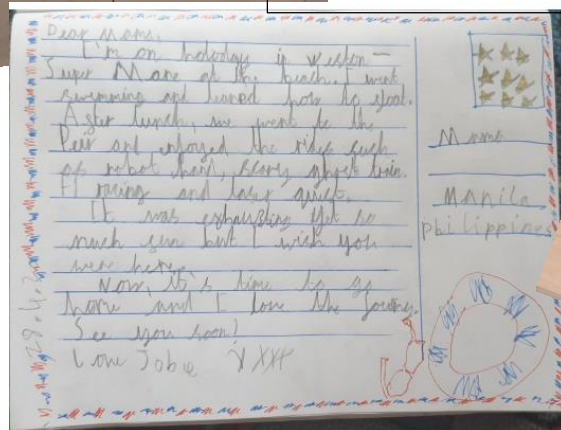 Dear Mama,
I'm on holoday in Weston -
Super Mare at the beach. I went
swimming and learned how to float.
After lunch, we went to the
Peir and enjoyed the rides such
as robot hand, scary ghost train.
F1 racing and laser quest.
It was exhausting yet so
much fun but I wish you
were here.
Now, it's time to go
home and I love the Journey.
See you soon!
Love Jobe XXXX
Mama
Manila
philippines